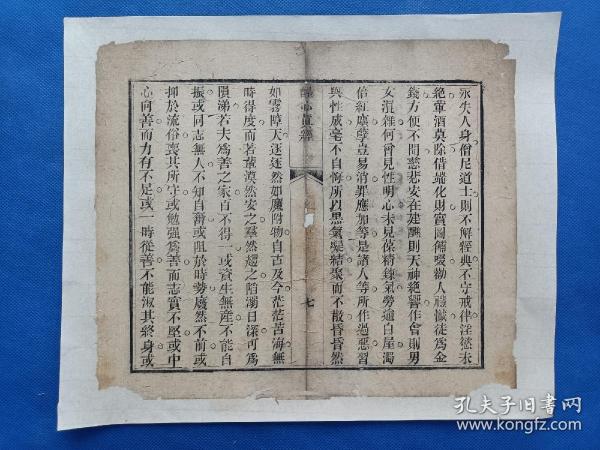 永失人身僧尼道士則不解經典不守戒律淫慾未
絕葷酒莫除借端化財實圖餔啜勸人禮懺徒爲金
錢方便不問慈悲安在建醮則天神絕響作會則男
女混雜何曾見性明心未見葆精鍊氣勞逾白屋濁
倍紅塵孽豈易消罪應加等是諸人等所作過惡習
與性成毫不自悔所以黑氣凝結聚而不散昏昏然
心真經
七
如雲障天逐逐然如魔附物自古及今茫茫苦海無
時得度而若輩漠然安之羣然趨之陷溺日深可爲
隕涕若夫爲善之家百不得一或資生無產不能自
振或同志無人不知自奮或阻於時勢廢然不前或
抑於流俗喪其所守或勉强爲善而志實不堅或中
心向善而力有不足或一時從善不能淑其終身或
孔夫子旧书网
www.kongfz.com